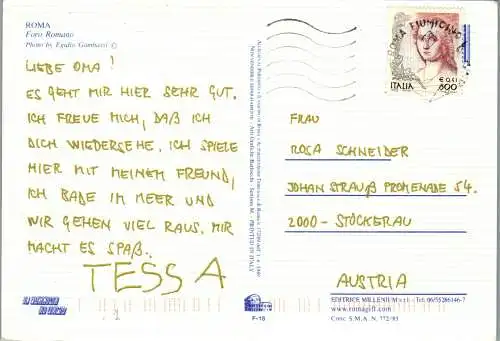 ROMA
Foro Romano
Photo by Egidio Gambassi ©
LIEBE OMA!
ES GEHT MIR HIER SEHR GUT.
ICH FREUE MICH, DAß ICH
DICH WIEDERSEHE. ICH SPIELE
HIER MIT MEINEM FREUND,
ICH BADE IM MEER UND
WIR GEHEN VIEL RAUS. MIR
MACHT ES SPAß.
TESSA
ROMA FIUMICINO
ITALIA
€ 0,41
800
FRAU
ROSA SCHNEIDER
JOHAN STRAUß PROMENADE 54.
2000- STOCKERAU
AUSTRIA
EDITRICE MILLENIUM s.r.l. - Tel. 06/55286146-7
www.romagift.com
Conc. S.M.A.N. 772/95
F-18
PRINTED IN ITALY